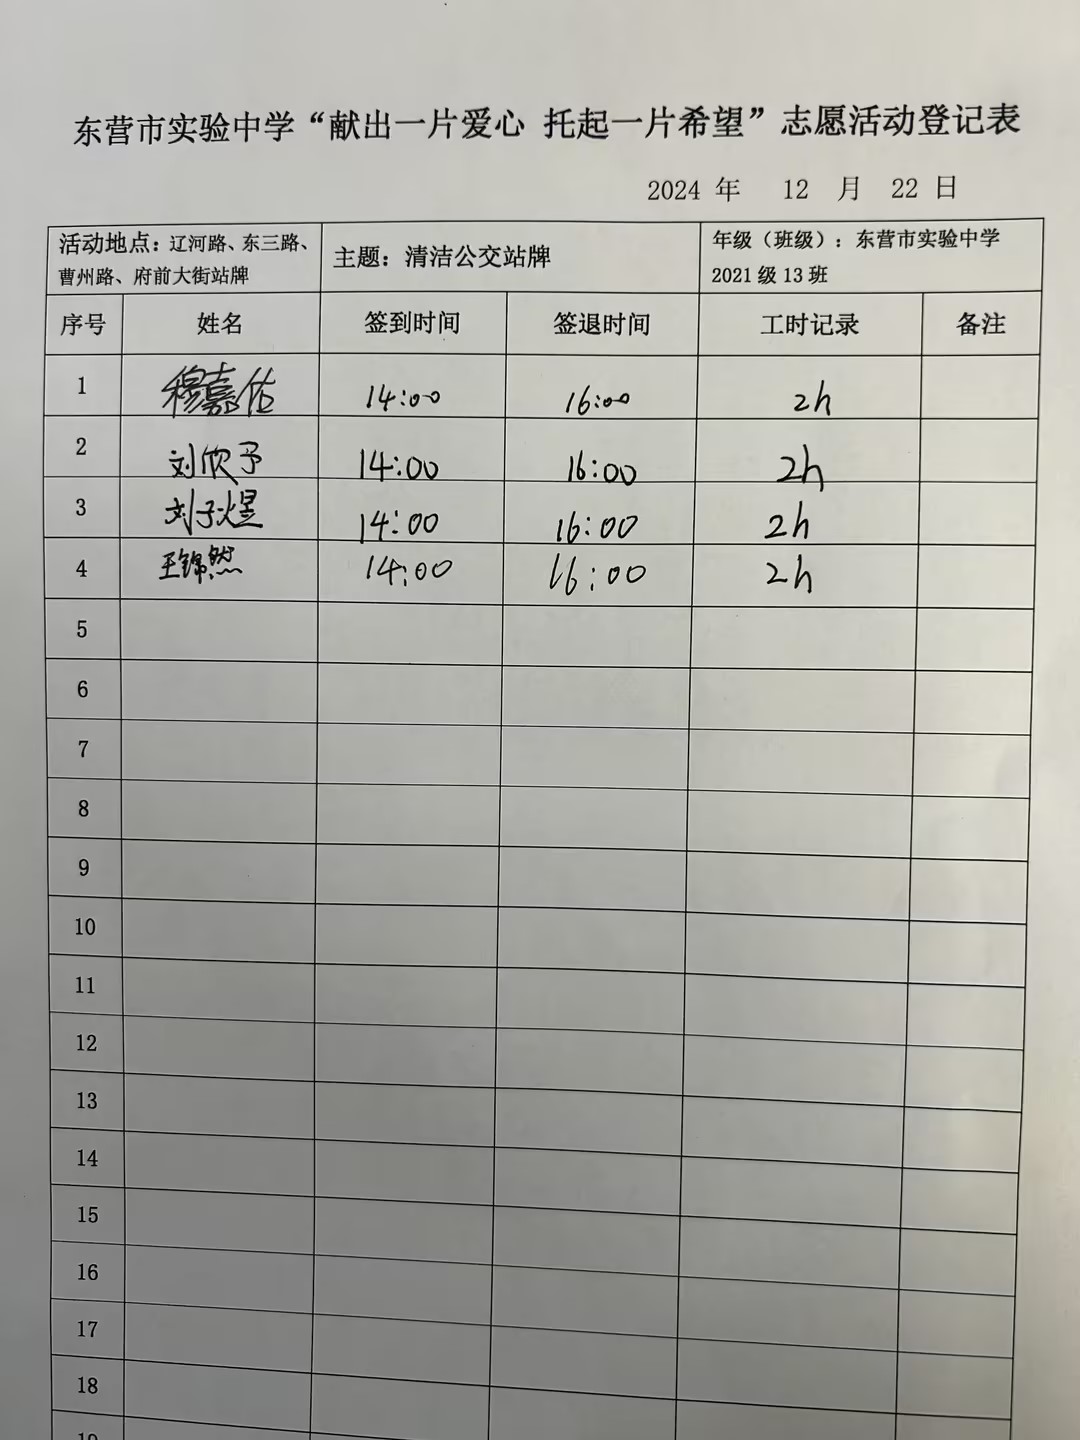 东营市实验中学“献出一片爱心 托起一片希望”志愿活动登记表
2024 年 12 月 22 日
活动地点：辽河路、东三路、曹州路、府前大街站牌 主题：清洁公交站牌 年级（班级）：东营市实验中学2021 级 13 班
序号 姓名 签到时间 签退时间 工时记录 备注
1 穆嘉佑 14:00 16:00 2h
2 刘欣予 14:00 16:00 2h
3 刘子煜 14:00 16:00 2h
4 王锦然 14:00 16:00 2h
5
6
7
8
9
10
11
12
13
14
15
16
17
18